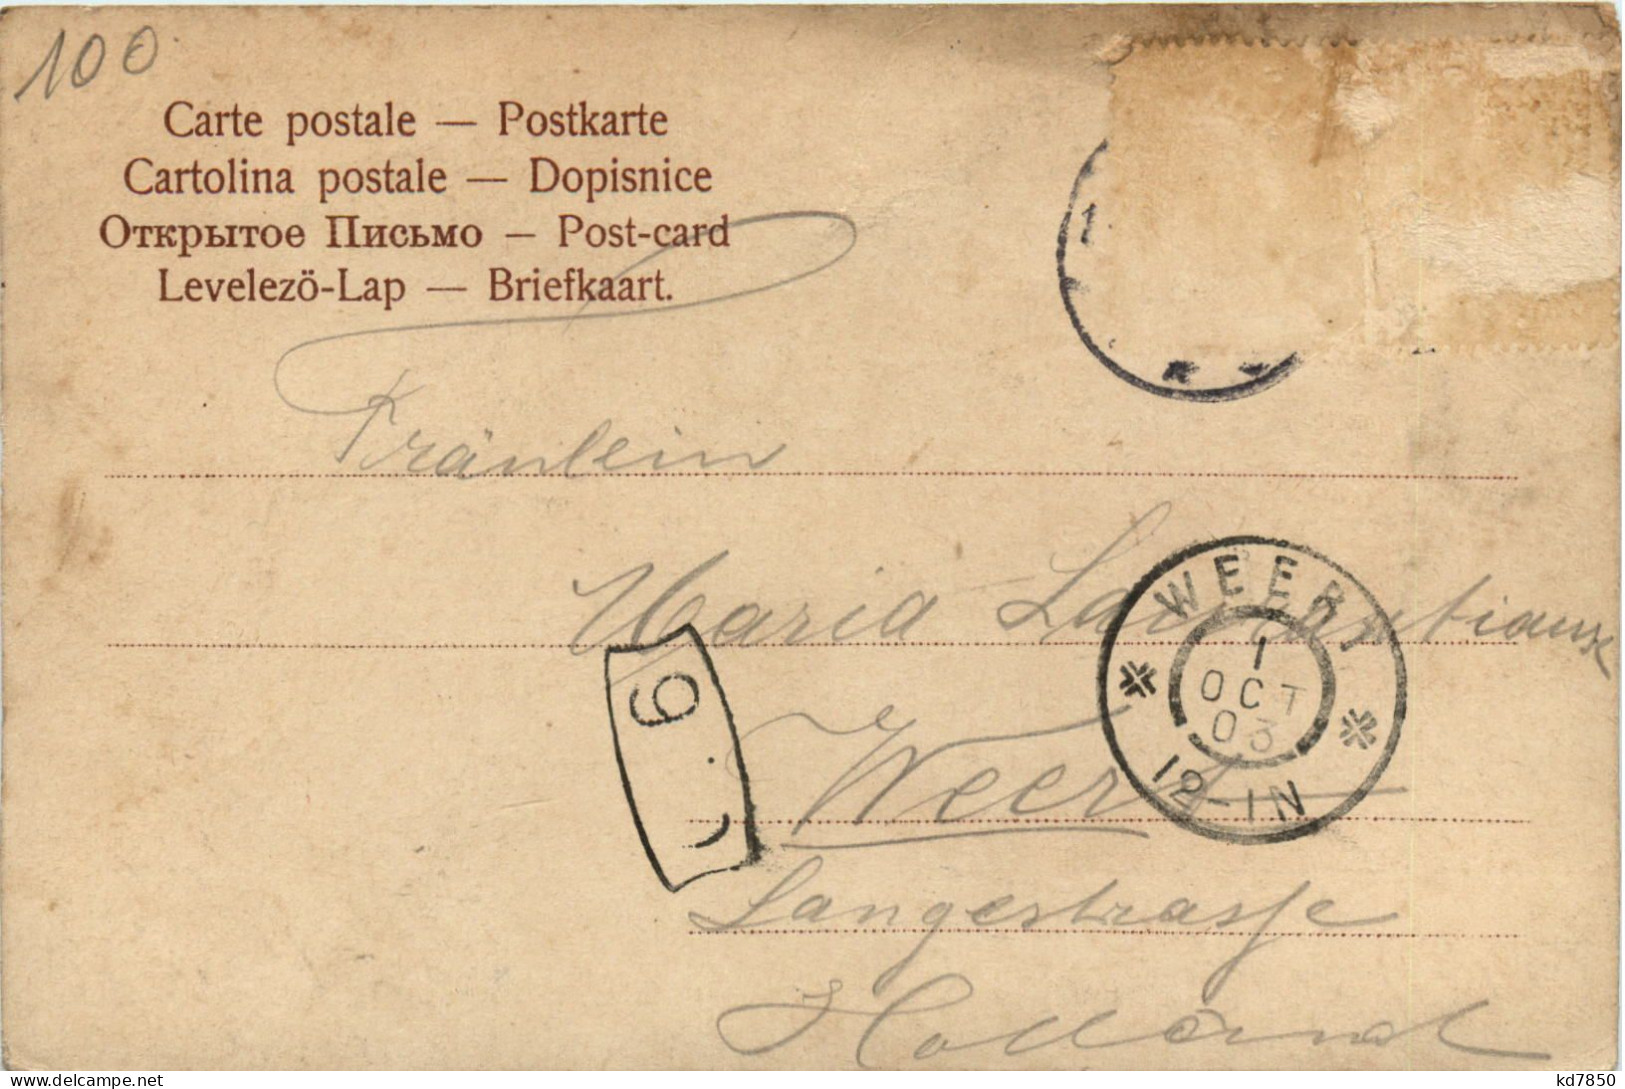 100
Carte postale — Postkarte
Cartolina postale — Dopisnice
Открытое Письмо — Post-card
Levelezö-Lap — Briefkaart.
Fräulein
Maria
WEERT
1
OCT
03
12-1N
9
Weert
Langestrasse
Holland
kd7850